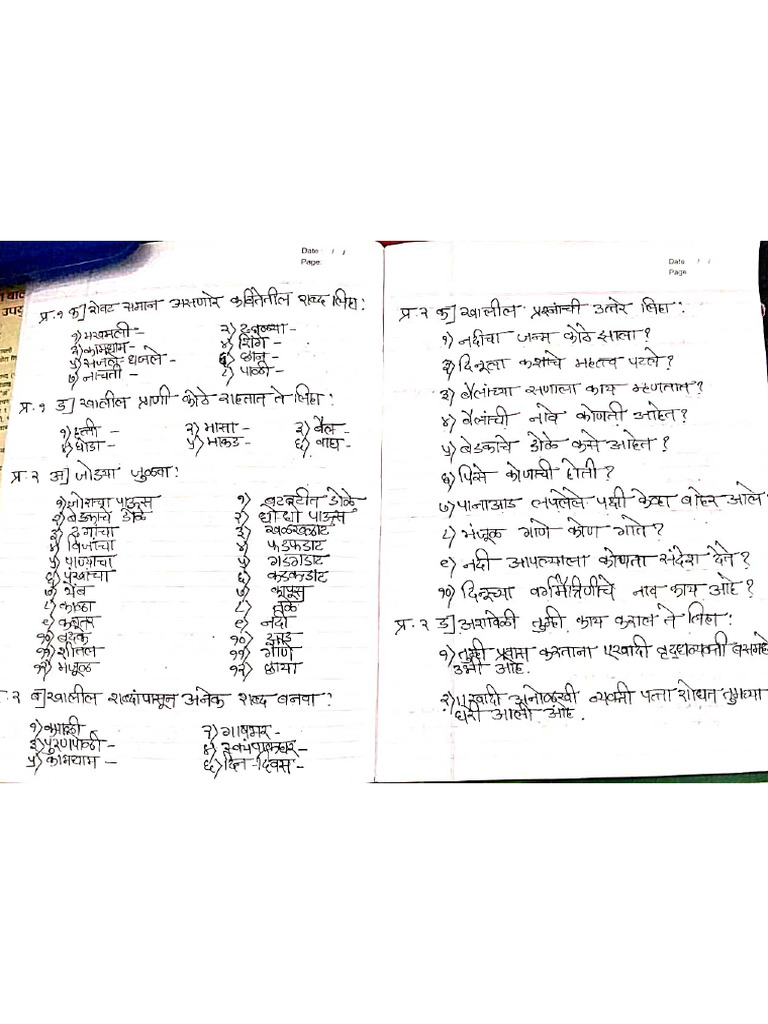 Date : / /
Page:
प्र.१ क] शेवट समान असणारे कवितेतील शब्द लिहा:
१) मखमली - २) ढगळ्या -
३) कामधाम - ४) शिंगे -
५) सजले-धजले - ६) छान -
७) नाचती - ८) पाळी -
प्र.१ ड] खालील प्राणी कोठे राहतात ते लिहा:
१) हत्ती - २) मासा - ३) बैल -
४) घोडा - ५) माकड - ६) वाघ -
प्र.२ अ] जोड्या जुळवा:
१) जोराचा पाऊस १) बटबटीत डोळे
२) बेडकाचे डोळे २) धो धो पाऊस
३) ढगांचा ३) खळखळाट
४) विजांचा ४) फडफडाट
५) पाण्याचा ५) गडगडाट
६) पंखांचा ६) कडकडाट
७) थेंब ७) कापूस
८) काळा ८) तळे
९) कबूतर ९) नदी
१०) बदक १०)
११) शीतल ११) गाणे
१२) मंजूळ १२) छाया
प्र.२ ब] खालील शब्दांपासून अनेक शब्द बनवा?
१) कपाळी २) गावभर -
३) पुरणपोळी - ४)
५) कामधाम - ६) दिन-दिवस -
Date : / /
Page
प्र.२ क] खालील प्रश्नांची उत्तरे लिहा:
१) नदीचा जन्म कोठे झाला?
२) दिनूला कशाचे महत्त्व पटले?
३) बैलांच्या सणाला काय म्हणतात?
४) बैलांची नावे कोणती आहेत?
५) बेडकाचे डोळे कसे आहेत?
६) पिसे कोणाची होती?
७) पानाआड लपलेले पक्षी केव्हा बाहेर आले
८) मंजूळ गाणे कोण गाते?
९) नदी आपल्याला कोणता संदेश देते?
१०) दिनूच्या वर्गमैत्रिणीचे नाव काय आहे?
प्र.२ ड] अशावेळी तुम्ही काय कराल ते लिहा:
१) तुम्ही प्रवास करताना एखादी वृद्धव्यक्ती बसमध्ये
उभी आहे.
२) एखादी अनोळखी व्यक्ती पत्ता शोधत तुमच्या
घरी आली आहे.